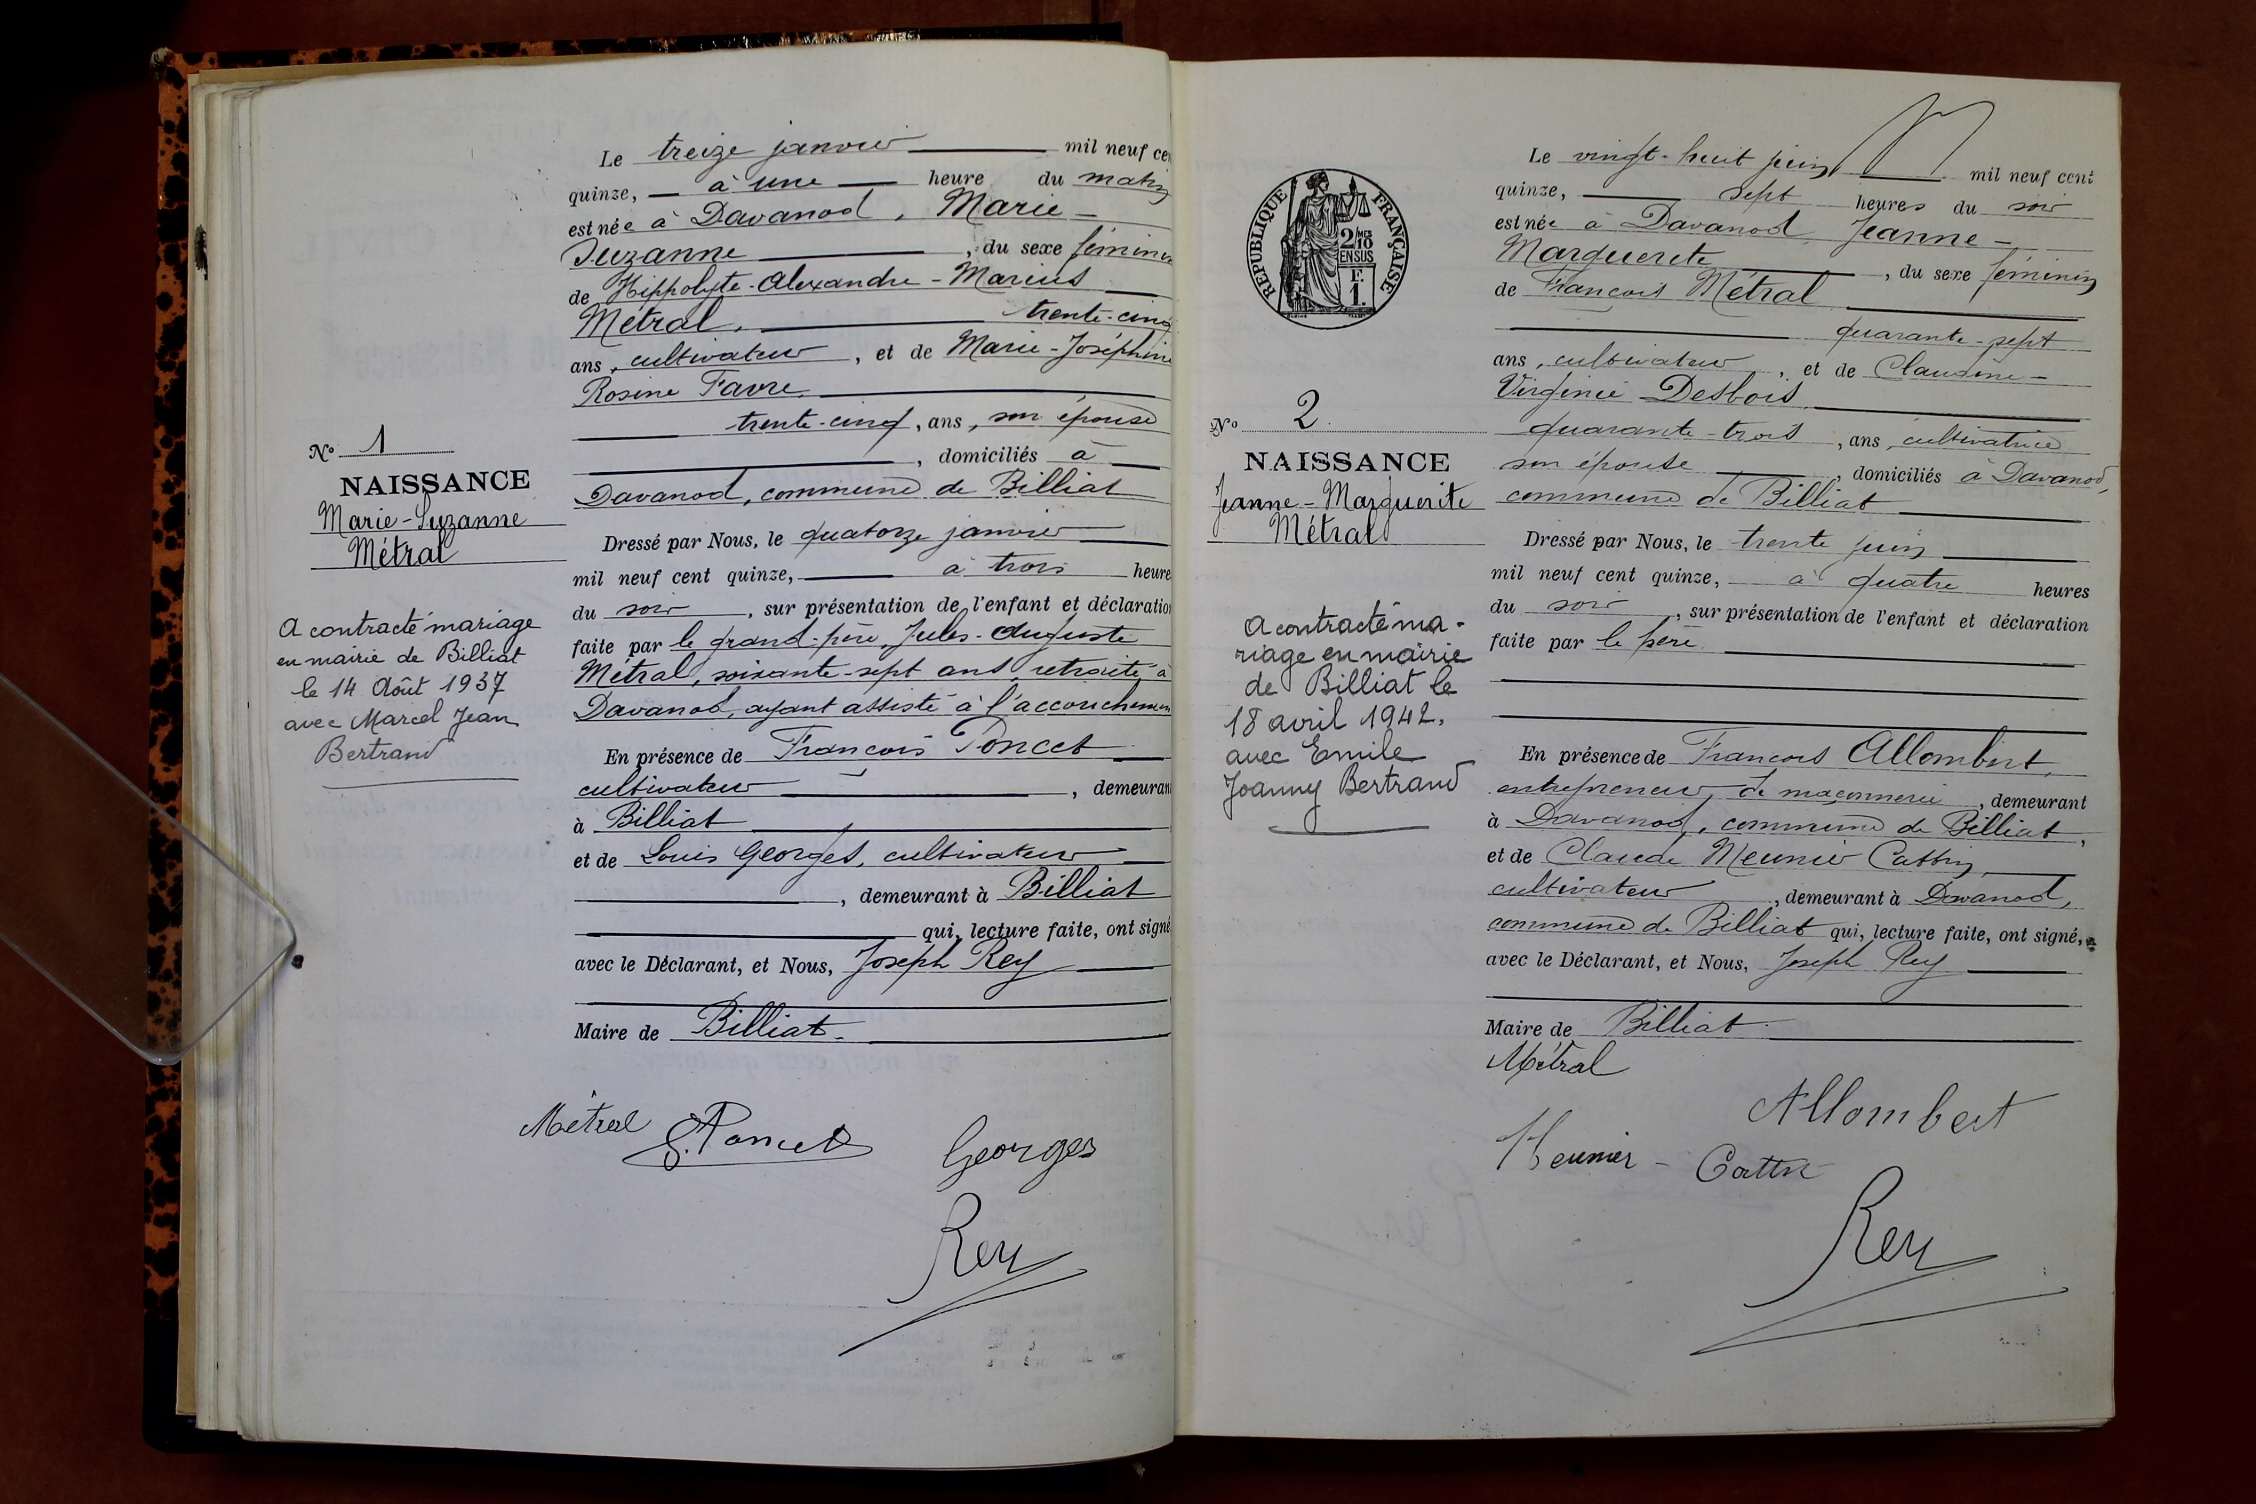 Le treize janvier mil neuf cen
quinze, à une heure du matin
est née à Davanod, Marie-
Suzanne, du sexe féminin
de Hippolyte-Alexandre-Marius
Métral, trente-cinq
ans, cultivateur, et de Marie-Joséphine
Rosine Favre,
trente-cinq, ans, son épouse
, domiciliés à
Davanod, commune de Billiat
Dressé par Nous, le quatorze janvier
mil neuf cent quinze, à trois heure
du soir, sur présentation de l'enfant et déclaration
faite par le grand-père, Jules-Auguste
Métral, soixante-sept ans, retraité à
Davanod, ayant assisté à l'accouchemen
En présence de François Poncet
cultivateur, demeuran
à Billiat
et de Louis Georges, cultivateur
, demeurant à Billiat
qui, lecture faite, ont signé
avec le Déclarant, et Nous, Joseph Rey
Maire de Billiat.
Métral Poncet Georges
Rey
No 1
NAISSANCE
Marie-Suzanne
Métral
A contracté mariage
en mairie de Billiat
le 14 Août 1937
avec Marcel Jean
Bertrand
RÉPUBLIQUE FRANÇAISE
2 MES
10
EN SUS
F.
1.
No 2
NAISSANCE
Jeanne-Marguerite
Métral
A contracté ma-
riage en mairie
de Billiat le
18 avril 1942.
avec Emile
Joanny Bertrand
Le vingt-huit juin mil neuf cent
quinze, sept heures du soir
est née à Davanod Jeanne-
Marguerite, du sexe féminin
de François Métral
quarante-sept
ans, cultivateur, et de Claudine-
Virginie Desbois
quarante-trois, ans, cultivatrice
son épouse, domiciliés à Davanod,
commune de Billiat
Dressé par Nous, le trente juin
mil neuf cent quinze, à quatre heures
du soir, sur présentation de l'enfant et déclaration
faite par le père
En présence de François Allombert,
entrepreneur de maçonnerie, demeurant
à Davanod, commune de Billiat,
et de Claude Meunier Cattin,
cultivateur, demeurant à Davanod,
commune de Billiat qui, lecture faite, ont signé,
avec le Déclarant, et Nous, Joseph Rey
Maire de Billiat.
Métral
Allombert
Meunier - Cattin
Rey